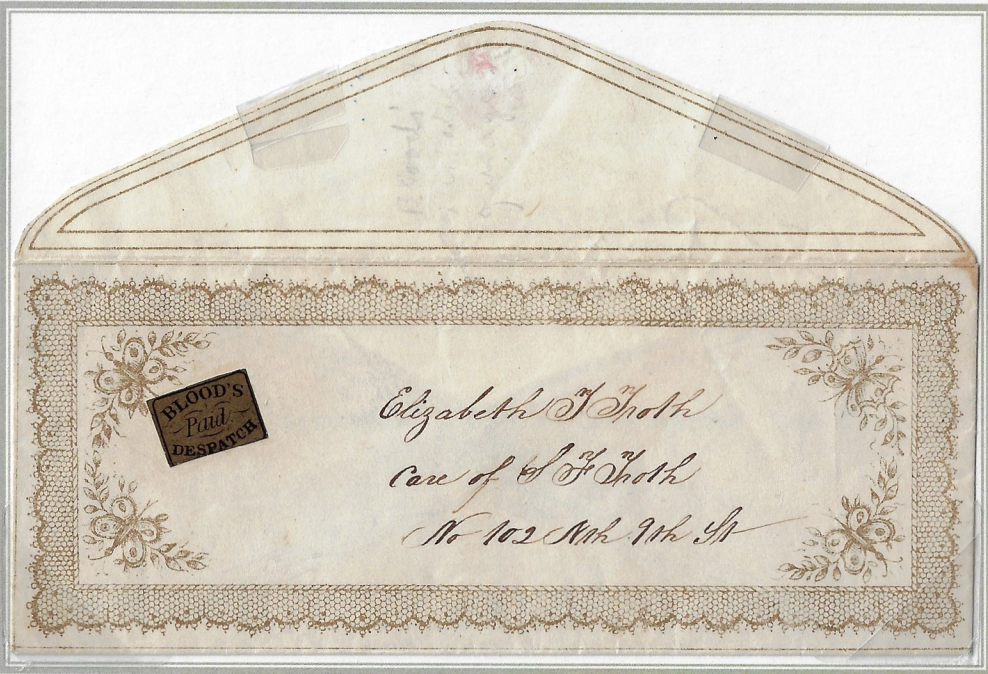 BLOOD'S
Paid
DESPATCH
Elizabeth F Troth
Care of S F Troth
No 102 Nth 9th St